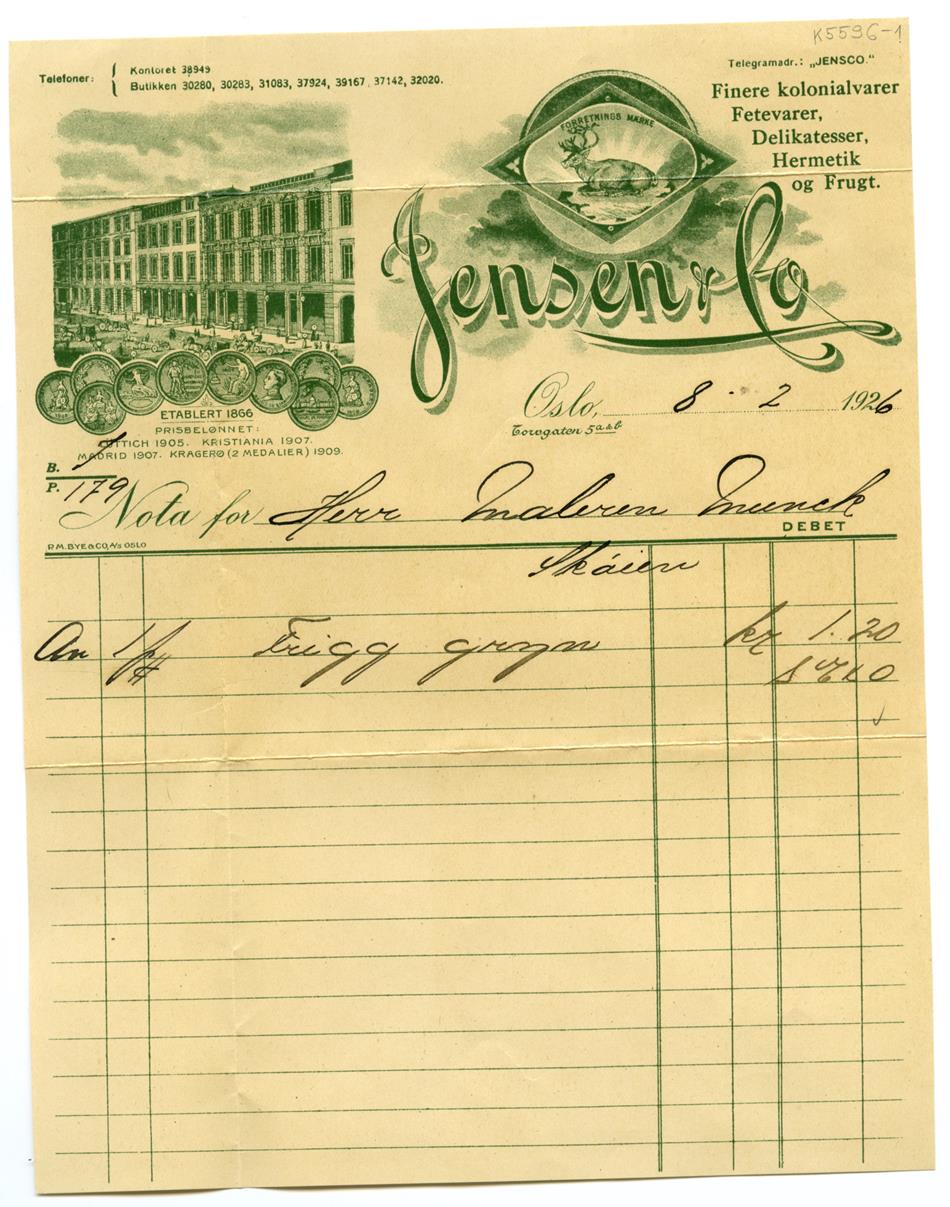 K5596-1
Telefoner: Kontoret 38949
Butikken 30280, 30283, 31083, 37924, 39167, 37142, 32020.
Telegramadr.: „JENSCO."
Finere kolonialvarer
Fetevarer,
Delikatesser,
Hermetik
og Frugt.
FORRETNINGS MÆRKE
Jensen & Co
ETABLERT 1866
PRISBELØNNET:
LÜTTICH 1905. KRISTIANIA 1907.
MADRID 1907. KRAGERØ (2 MEDALIER) 1909.
Oslo, 8 - 2 1926
Torvgaten 5 a & b
B. 1
P. 179
Nota for Herr Maleren Munck
DEBET
P.M. BYE & CO, A/S OSLO
Skøien
An 1/1 Frigg gryn kr 1.20